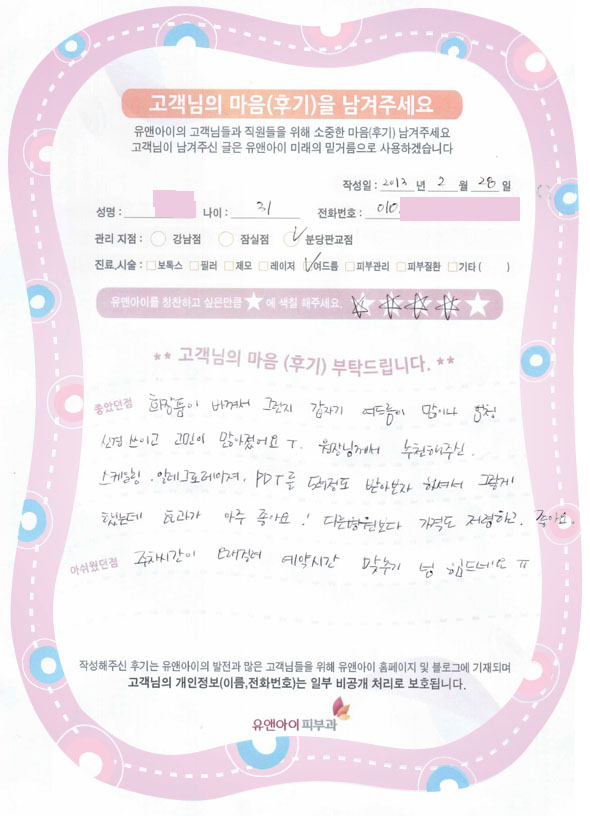 고객님의 마음(후기)을 남겨주세요
유앤아이의 고객님들과 직원들을 위해 소중한 마음(후기) 남겨주세요
고객님이 남겨주신 글은 유앤아이 미래의 밑거름으로 사용하겠습니다
작성일 : 2013 년 2 월 28 일
성명 : 나이 : 31 전화번호 : 010.
관리 지점 : 강남점 잠실점 분당판교점
진료,시술 : 보톡스 필러 제모 레이저 여드름 피부관리 피부질환 기타 ( )
유앤아이를 칭찬하고 싶은만큼 ★ 에 색칠 해주세요.
** 고객님의 마음 (후기) 부탁드립니다. **
좋았던점 화장품이 바껴서 그런지 갑자기 여드름이 많이나 엄청
신경 쓰이고 고민이 많아졌어요 ㅜ. 원장님께서 추천해주신.
스케일링. 알레그로레이져. PDT를 정도 받아보자 하셔서 그렇게
했는데 효과가 아주 좋아요! 다른병원보다 가격도 저렴하고. 좋아요.
아쉬웠던점 주차시간이 예약시간 맞추기 넘 힘드네요 ㅠ
작성해주신 후기는 유앤아이의 발전과 많은 고객님들을 위해 유앤아이 홈페이지 및 블로그에 기재되며
고객님의 개인정보(이름,전화번호)는 일부 비공개 처리로 보호됩니다.
유앤아이피부과